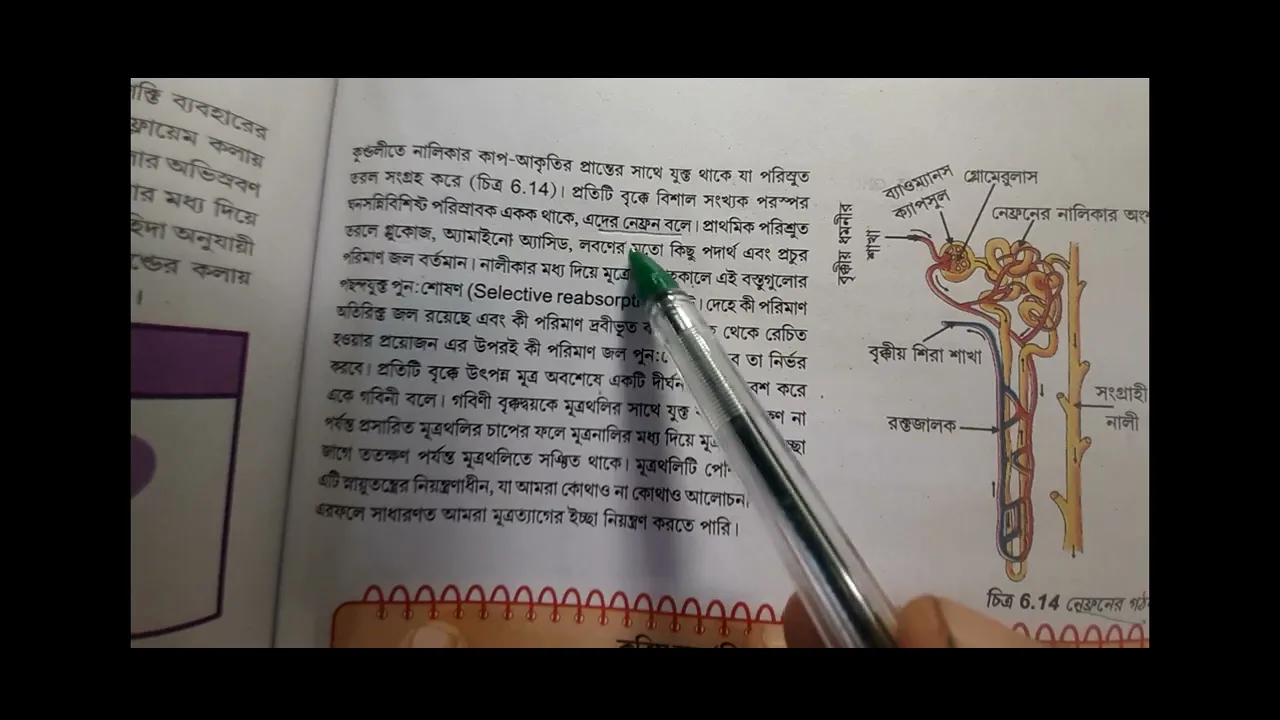 ব্যবহারের
কলায়
অভিস্রবণ
মধ্য দিয়ে
অনুযায়ী
কলায়
।
কুণ্ডলীতে নালিকার কাপ-আকৃতির প্রান্তের সাথে যুক্ত থাকে যা পরিস্রুত
তরল সংগ্রহ করে (চিত্র 6.14)। প্রতিটি বৃক্কে বিশাল সংখ্যক পরস্পর
ঘনসন্নিবিশিষ্ট পরিস্রাবক একক থাকে, এদের নেফ্রন বলে। প্রাথমিক পরিশ্রুত
তরলে গ্লুকোজ, অ্যামাইনো অ্যাসিড, লবণের মতো কিছু পদার্থ এবং প্রচুর
পরিমাণ জল বর্তমান। নালীকার মধ্য দিয়ে এই বস্তুগুলোর
পছন্দযুক্ত পুন:শোষণ (Selective । দেহে কী পরিমাণ
অতিরিক্ত জল রয়েছে এবং কী পরিমাণ দ্রবীভূত থেকে রেচিত
হওয়ার প্রয়োজন এর উপরই কী পরিমাণ জল তা নির্ভর
করবে। প্রতিটি বৃক্কে উৎপন্ন মূত্র অবশেষে একটি করে
একে গবিনী বলে। গবিণী বৃক্কদ্বয়কে মূত্রথলির সাথে যুক্ত না
পর্যন্ত প্রসারিত মূত্রথলির চাপের ফলে মূত্রনালির মধ্য দিয়ে
জাগে ততক্ষণ পর্যন্ত মূত্রথলিতে সঞ্চিত থাকে। মূত্রথলিটি
এটি স্নায়ুতন্ত্রের নিয়ন্ত্রণাধীন, যা আমরা কোথাও না কোথাও
এরফলে সাধারণত আমরা মূত্রত্যাগের ইচ্ছা নিয়ন্ত্রণ করতে পারি।
ব্যাওম্যানস
ক্যাপসুল
গ্লোমেরুলাস
নেফ্রনের নালিকার
বৃক্কীয় ধমনীর
শাখা
বৃক্কীয় শিরা শাখা
রক্তজালক
সংগ্রাহী
নালী
চিত্র 6.14 নেফ্রনের